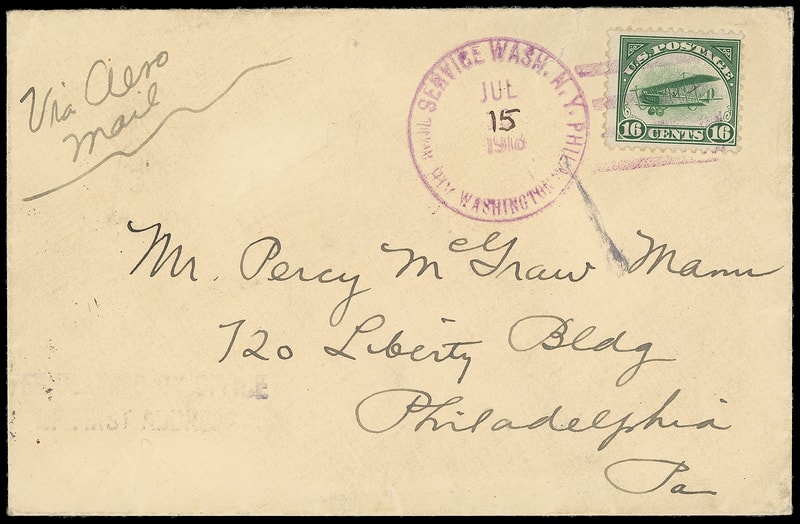 Via Aero
Mail
SERVICE WASH. N.Y. PHILA
JUL
15
1918
WASHINGTON
U.S. POSTAGE
16 CENTS 16
Mr. Percy McGraw Mann
720 Liberty Bldg
Philadelphia
Pa